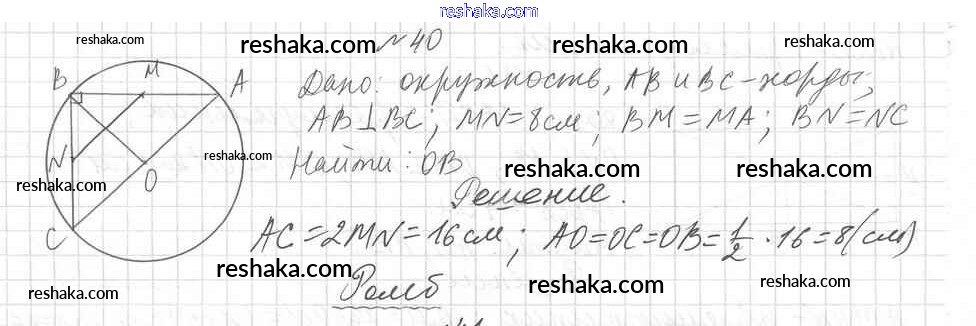 reshaka.com
№40
reshaka.com reshaka.com reshaka.com reshaka.com
B M A
Дано: окружность, AB и BC – хорды;
AB⊥BC; MN=8см, BM=MA; BN=NC
N O
reshaka.com
Найти: OB
reshaka.com reshaka.com reshaka.com
Решение.
C
AC=2MN=16см; AO=OC=OB=1/2·16=8(см)
reshaka.com
Ромб
reshaka.com reshaka.com reshaka.com